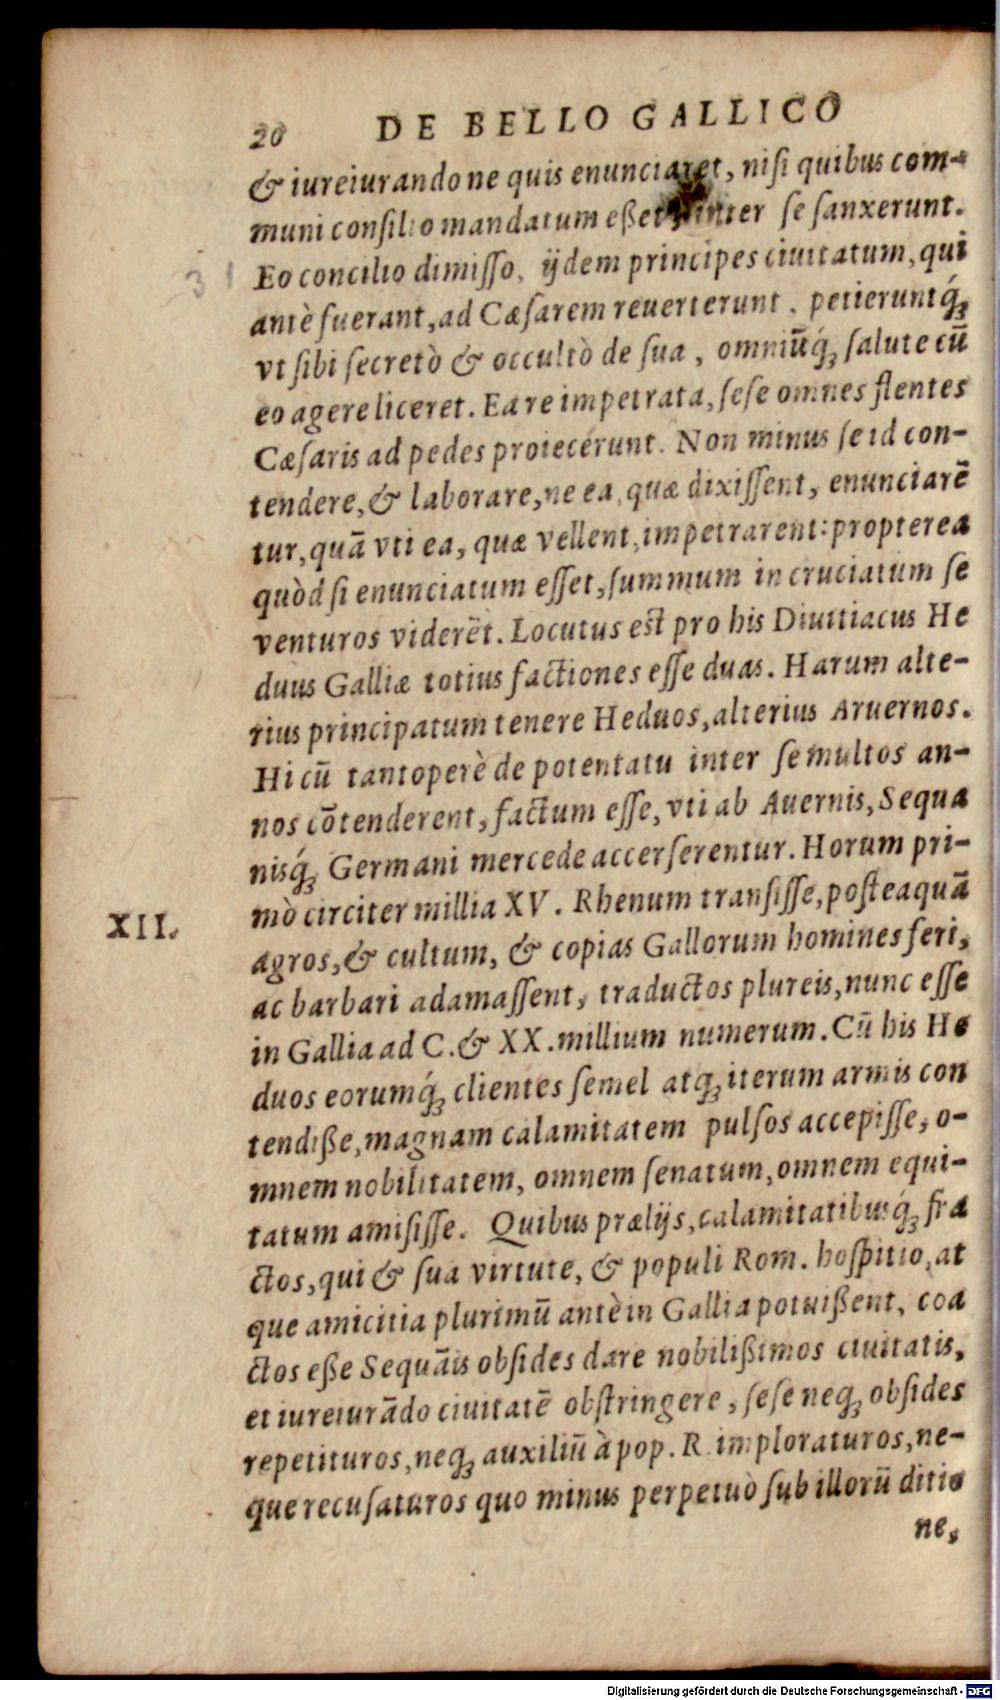 20 DE BELLO GALLICO
& iureiurando ne quis enunciaret, nisi quibus com-
muni consilio mandatum eßet inter se sanxerunt.
31
Eo concilio dimisso, ijdem principes ciuitatum, qui
antè fuerant, ad Cæsarem reuerterunt, petieruntq́ꝫ
vt sibi secretò & occultò de sua, omniūq́ꝫ salute cū
eo agere liceret. Ea re impetrata, sese omnes flentes
Cæsaris ad pedes proiecérunt. Non minus se id con-
tendere, & laborare, ne ea, quæ dixissent, enunciarē
tur, quā vti ea, quæ vellent, impetrarent: propterea
quòd si enunciatum esset, summum in cruciatum se
venturos viderēt. Locutus est pro his Diuitiacus He
duus Galliæ totius factiones esse duas. Harum alte-
rius principatum tenere Heduos, alterius Aruernos.
Hi cū tantoperè de potentatu inter se multos an-
nos cōtenderent, factum esse, vti ab Auernis, Sequa
nisq́ꝫ Germani mercede accerserentur. Horum pri-
XII.
mò circiter millia XV. Rhenum transisse, posteaquā
agros, & cultum, & copias Gallorum homines feri,
ac barbari adamassent, traductos plureis, nunc esse
in Gallia ad C. & XX. millium numerum. Cū his He
duos eorumq́ꝫ clientes semel atqꝫ iterum armis con
tendiße, magnam calamitatem pulsos accepisse, o-
mnem nobilitatem, omnem senatum, omnem equi-
tatum amisisse. Quibus prælijs, calamitatibusq́ꝫ fra
ctos, qui & sua virtute, & populi Rom. hospitio, at
que amicitia plurimū antè in Gallia potuißent, coa
ctos eße Sequāis obsides dare nobilißimos ciuitatis,
et iureiurādo ciuitatē obstringere, sese neqꝫ obsides
repetituros, neqꝫ auxiliū à pop. R. imploraturos, ne-
que recusaturos quo minus perpetuò sub illorū ditio
ne,
Digitalisierung gefördert durch die Deutsche Forschungsgemeinschaft - DFG